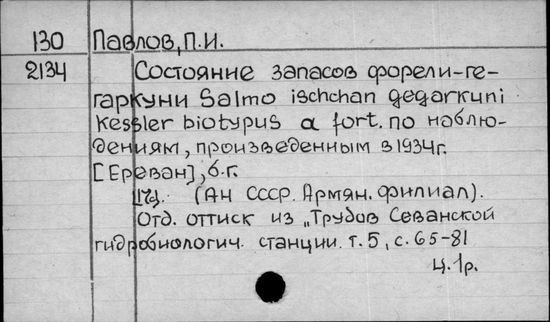 130 Павлов, П.И.
2134 Состояние запасов форели-ге-
гаркуни Salmo ischchan gegarkuni
Kessler biotypus α fort. по наблю-
дениям, произведенным в 1934г.
[Ереван], б.г.
17с. (АН СССР. Армян. филиал).
Отд. оттиск из „Трудов Севанской
гидробиологич. станции. т. 5, с. 65-81
ц. 1р.